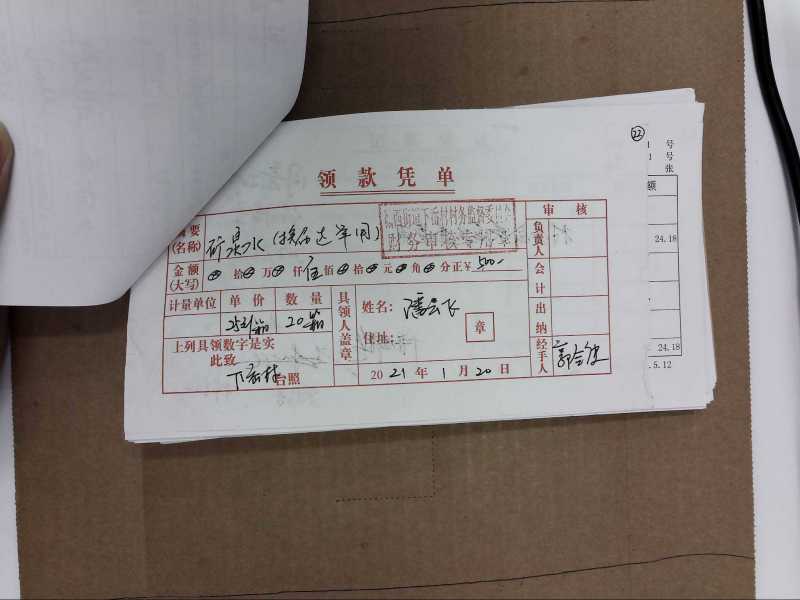 22
号
号
张
额
领款凭单
摘要
(名称)
矿泉水(换届选举用)
西街道下面村村务监督委员会
财务审核专用章
审核
负责人
24.18
金额
(大写)
拾 万 仟伍佰 拾 元 角 分正¥500-
会计
计量单位 单价 数量
具领人盖章
姓名:潘云飞
25元/箱 20箱
住址:
章
出纳
上列具领数字是实
此致
台照
2021年1月20日
经手人
24.18
.5.12